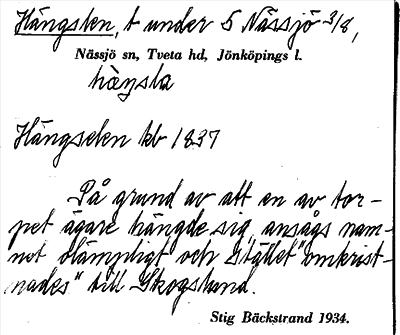 Hängsten, t under 5 Nässjö 3/8,
Nässjö sn, Tveta hd, Jönköpings l.
hæŋsta
Hängseten kb 1837
På grund av att en av tor-
pet ägare hängde sig, ansågs nam-
net olämpligt och stället "omkrist-
nades" till Skogslund.
Stig Bäckstrand 1934.